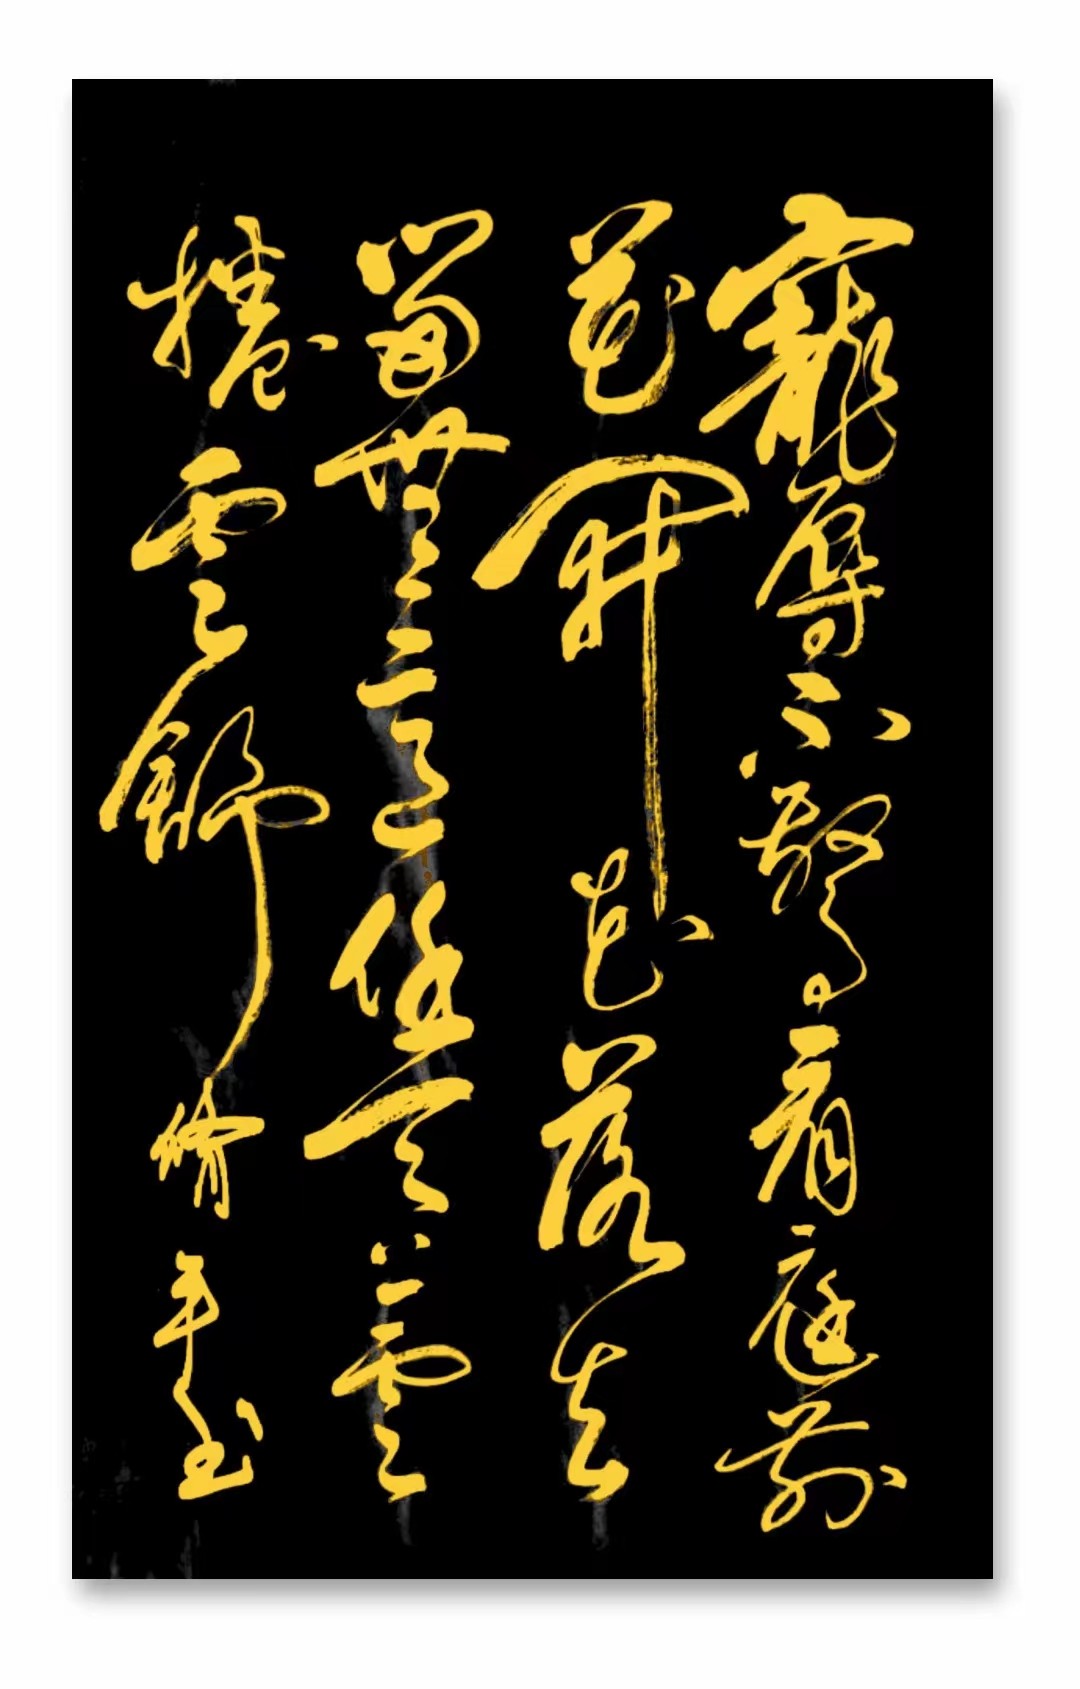 寵辱不驚看庭前
花開花落去
留無意任天雲
捲雲舒